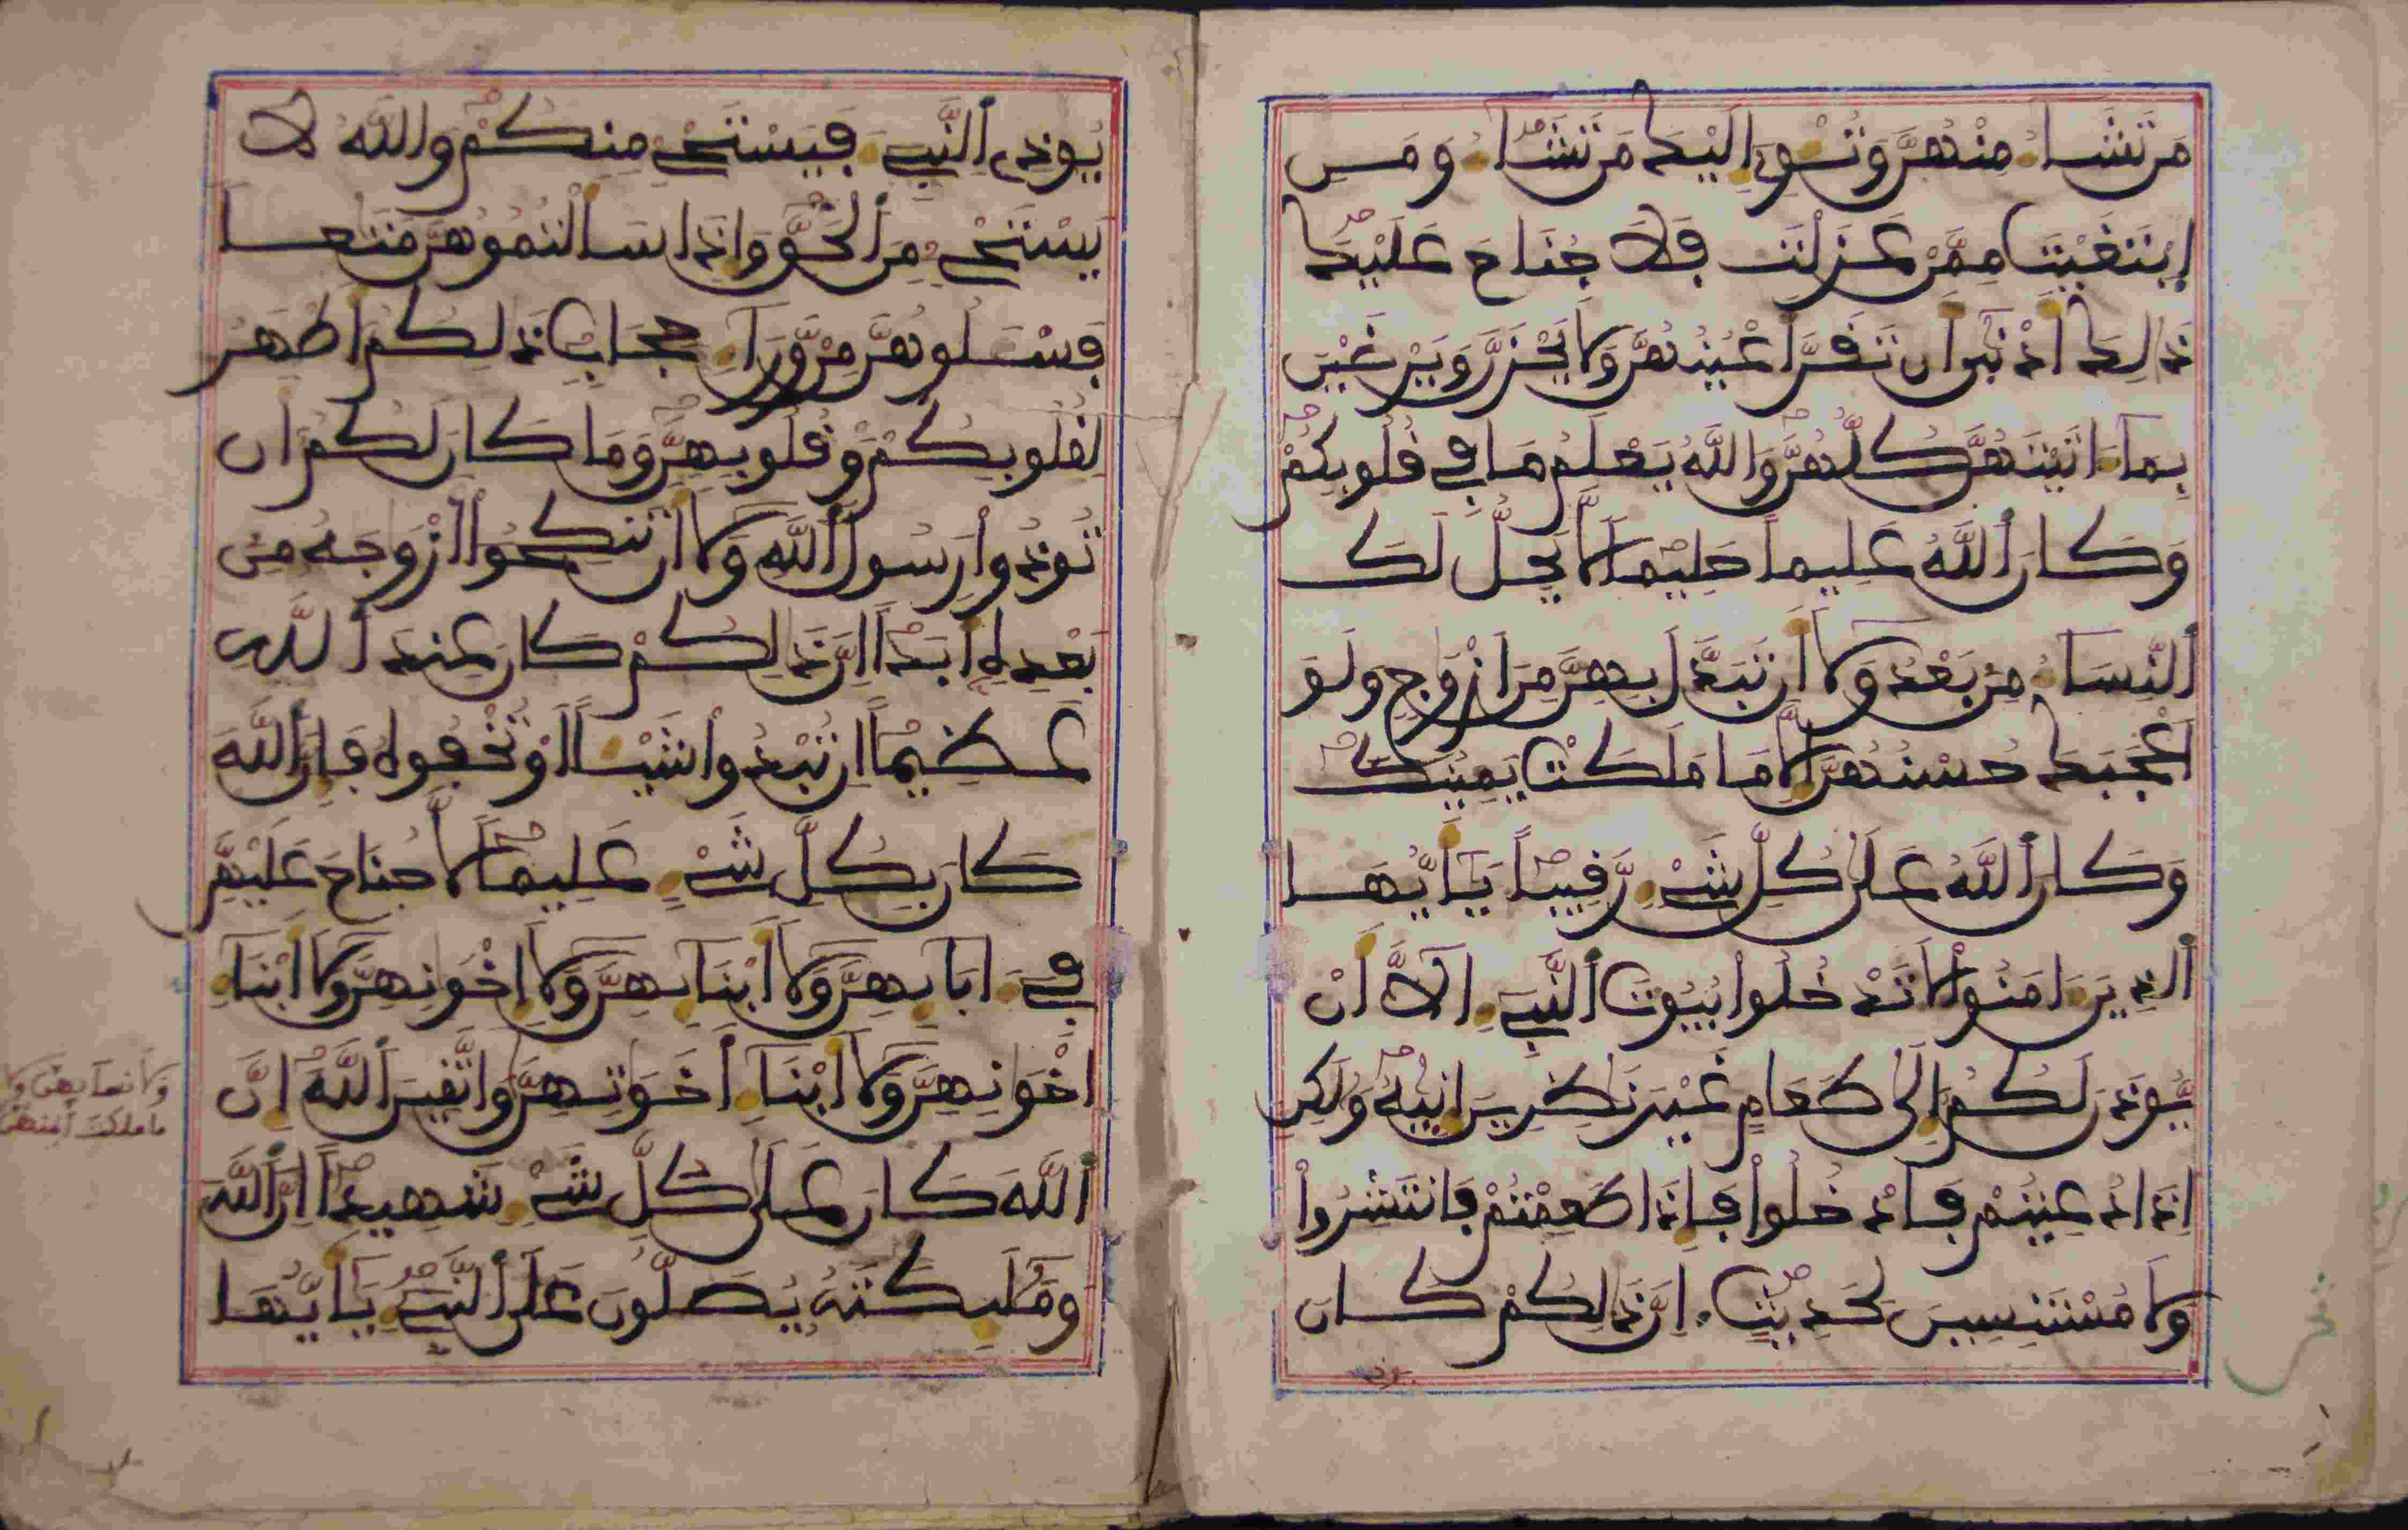 مَن تَشَاءُ مِنْهُنَّ وَتُـْٔوِي إِلَيْكَ مَن تَشَاءُ وَمَنِ
اِبْتَغَيْتَ مِمَّنْ عَزَلْتَ فَلَا جُنَاحَ عَلَيْكَ
ذَالِكَ أَدْنَىٰ أَن تَقَرَّ أَعْيُنُهُنَّ وَلَا يَحْزَنَّ وَيَرْضَيْنَ
بِمَا ءَاتَيْتَهُنَّ كُلُّهُنَّ وَاللَّهُ يَعْلَمُ مَا فِي قُلُوبِكُمْ
وَكَانَ اَللَّهُ عَلِيماً حَلِيماً لَّا يَحِلُّ لَكَ
اَلنِّسَاءُ مِنۢ بَعْدُ وَلَا أَن تَبَدَّلَ بِهِنَّ مِنَ أَزْوَٰجٍ وَلَوَ
اَعْجَبَكَ حُسْنُهُنَّ إِلَّا مَا مَلَكَتْ يَمِينُكَ
وَكَانَ اَللَّهُ عَلَىٰ كُلِّ شَيْءٍ رَّقِيباً يَٰأَيُّهَا
اَلذِينَ ءَامَنُوا لَا تَدْخُلُوا بُيُوتَ اَلنَّبِيءِ الَّا أَنْ
يُّوذَنَ لَكُمُ إِلَىٰ طَعَامٍ غَيْرَ نَٰظِرِينَ إِنَيٰهُ وَلَكِنِ
اِذَا دُعِيتُمْ فَادْخُلُوا فَإِذَا طَعِمْتُمْ فَانتَشِرُوا
وَلَا مُسْتَـْٔنِسِينَ لِحَدِيثٍ. إِنَّ ذَٰلِكُمْ كَانَ
يوذ
يُوذِي اَلنَّبِيءَ فَيَسْتَحْيِ مِنكُمْ وَاللَّهُ لَا
يَسْتَحْيِ مِنَ اَلْحَقِّ وَإِذَا سَأَلْتُمُوهُنَّ مَتَٰعاً
فَسْـَٔلُوهُنَّ مِنْ وَّرَاءِ حِجَابٍ ذَٰلِكُمُ أَطْهَرُ
لِقُلُوبِكُمْ وَقُلُوبِهِنَّ وَمَا كَانَ لَكُمُ أَن
تُوذُوا رَسُولَ اَللَّهِ وَلَا أَن تَنكِحُوا أَزْوَٰجَهُ مِن
بَعْدِهِ أَبَداً إِنَّ ذَٰلِكُمْ كَانَ عِندَ اَللَّهِ
عَظِيماً إِن تُبْدُوا شَيْـٔاً أَوْ تُخْفُوهُ فَإِنَّ اَللَّهَ
كَانَ بِكُلِّ شَيْءٍ عَلِيماً لَّا جُنَاحَ عَلَيْهِنَّ
فِي ءَابَائِهِنَّ وَلَا أَبْنَائِهِنَّ وَلَا إِخْوَٰنِهِنَّ وَلَا أَبْنَاءِ
اِخْوَٰنِهِنَّ وَلَا أَبْنَاءِ أَخَوَٰتِهِنَّ وَاتَّقِينَ اَللَّهَ إِنَّ
اَللَّهَ كَانَ عَلَىٰ كُلِّ شَيْءٍ شَهِيداً إِنَّ اَللَّهَ
وَمَلَٰئِكَتَهُ يُصَلُّونَ عَلَى اَلنَّبِيءِ يَٰأَيُّهَا
ولا نسائهن ولا
ما ملكت أيمنهن